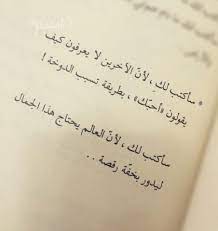 * سأكتب لكِ ، لأنّ الآخرين لا يعرفون كيف
يقولون «أحبّك» ، بطريقة تسبب الدوخة !
سأكتب لك ، لأنّ العالم يحتاج هذا الجمال
ليدور بخفّة رقصة . .